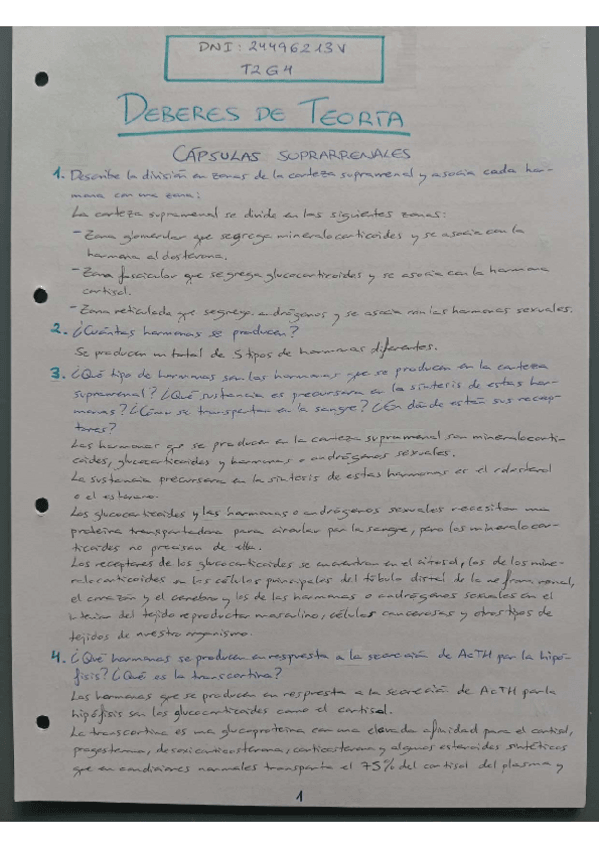 DNI: 24496213V
T2G4
DEBERES DE TEORÍA
CÁPSULAS SUPRARRENALES
1. Describe la división en zonas de la corteza suprarrenal y asocia cada hor-
mona con una zona:
La corteza suprarrenal se divide en las siguientes zonas:
- Zona glomerular que segrega mineralocorticoides y se asocia con la
hormona aldosterona.
- Zona fascicular que segrega glucocorticoides y se asocia con la hormona
cortisol.
- Zona reticulada que segrega andrógenos y se asocia con las hormonas sexuales.
2. ¿Cuántas hormonas se producen?
Se producen un total de 5 tipos de hormonas diferentes.
3. ¿Qué tipo de hormonas son las hormonas que se producen en la corteza
suprarrenal? ¿Qué sustancia es precursora en la síntesis de estas hor-
monas? ¿Cómo se transportan en la sangre? ¿En dónde están sus recep-
tores?
Las hormonas que se producen en la corteza suprarrenal son mineralocorti-
coides, glucocorticoides y hormonas o andrógenos sexuales.
La sustancia precursora en la síntesis de estas hormonas es el colesterol
o el
Los glucocorticoides y las hormonas o andrógenos sexuales necesitan una
proteína transportadora para circular por la sangre, pero los mineralocor-
ticoides no precisan de ella.
Los receptores de los glucocorticoides se encuentran en el citosol, los de los mine-
ralocorticoides en las células principales del túbulo distal de la nefrona renal,
el corazón y el cerebro y los de las hormonas o andrógenos sexuales en el
útero del tejido reproductor masculino, células cancerosas y otros tipos de
tejidos de nuestro organismo.
4. ¿Qué hormonas se producen en respuesta a la secreción de AcTH por la hipó-
fisis? ¿Qué es la transcortina?
Las hormonas que se producen en respuesta a la secreción de AcTH por la
hipófisis son los glucocorticoides como el cortisol.
La transcortina es una glucoproteína con una elevada afinidad para el cortisol,
progesterona, desoxicorticosterona, corticosterona y algunos esteroides sintéticos
que en condiciones normales transporta el 75% del cortisol del plasma y
1